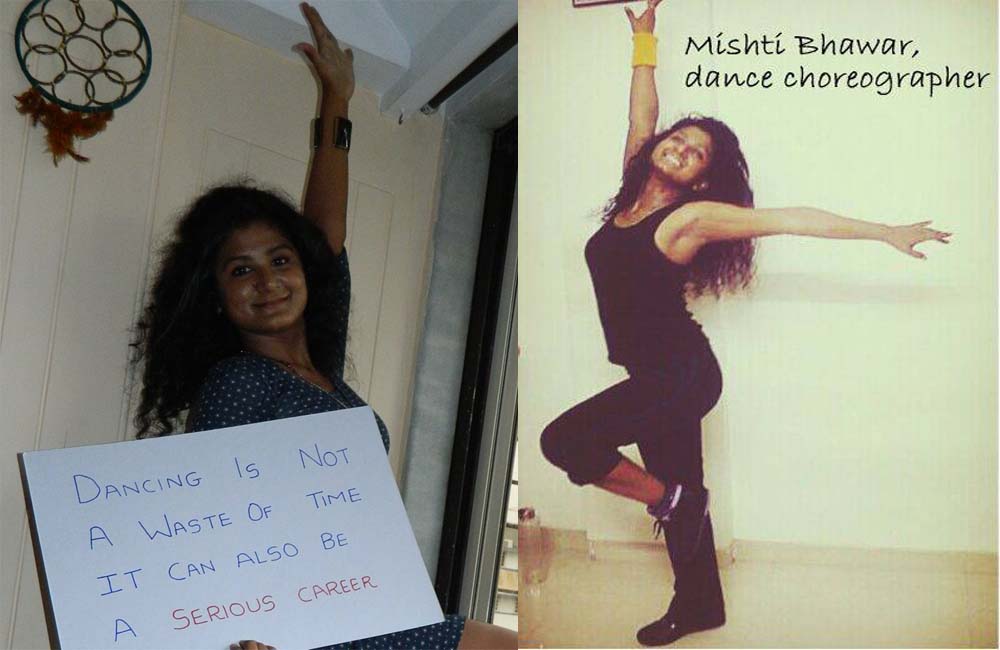 DANCING IS NOT
A WASTE OF TIME
IT CAN ALSO BE
A SERIOUS CAREER
Mishti Bhawar,
dance choreographer